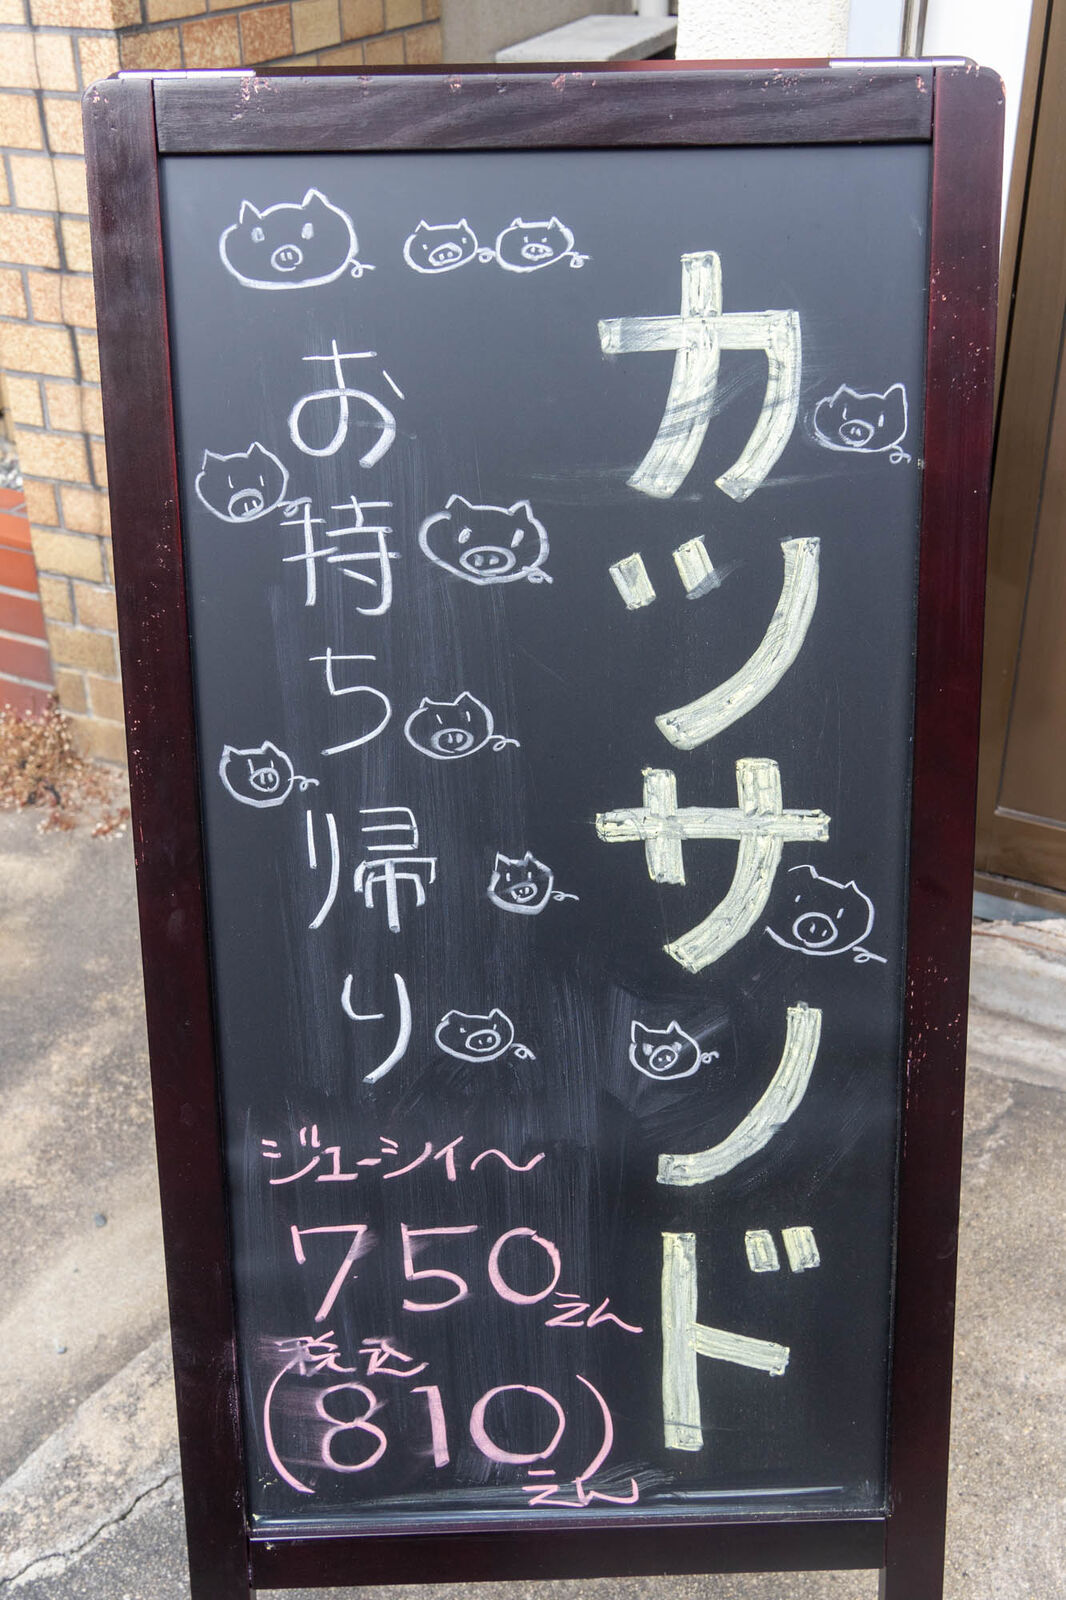 カツサンド
お持ち帰り
ジューシィ〜
750えん
税込
(810えん)